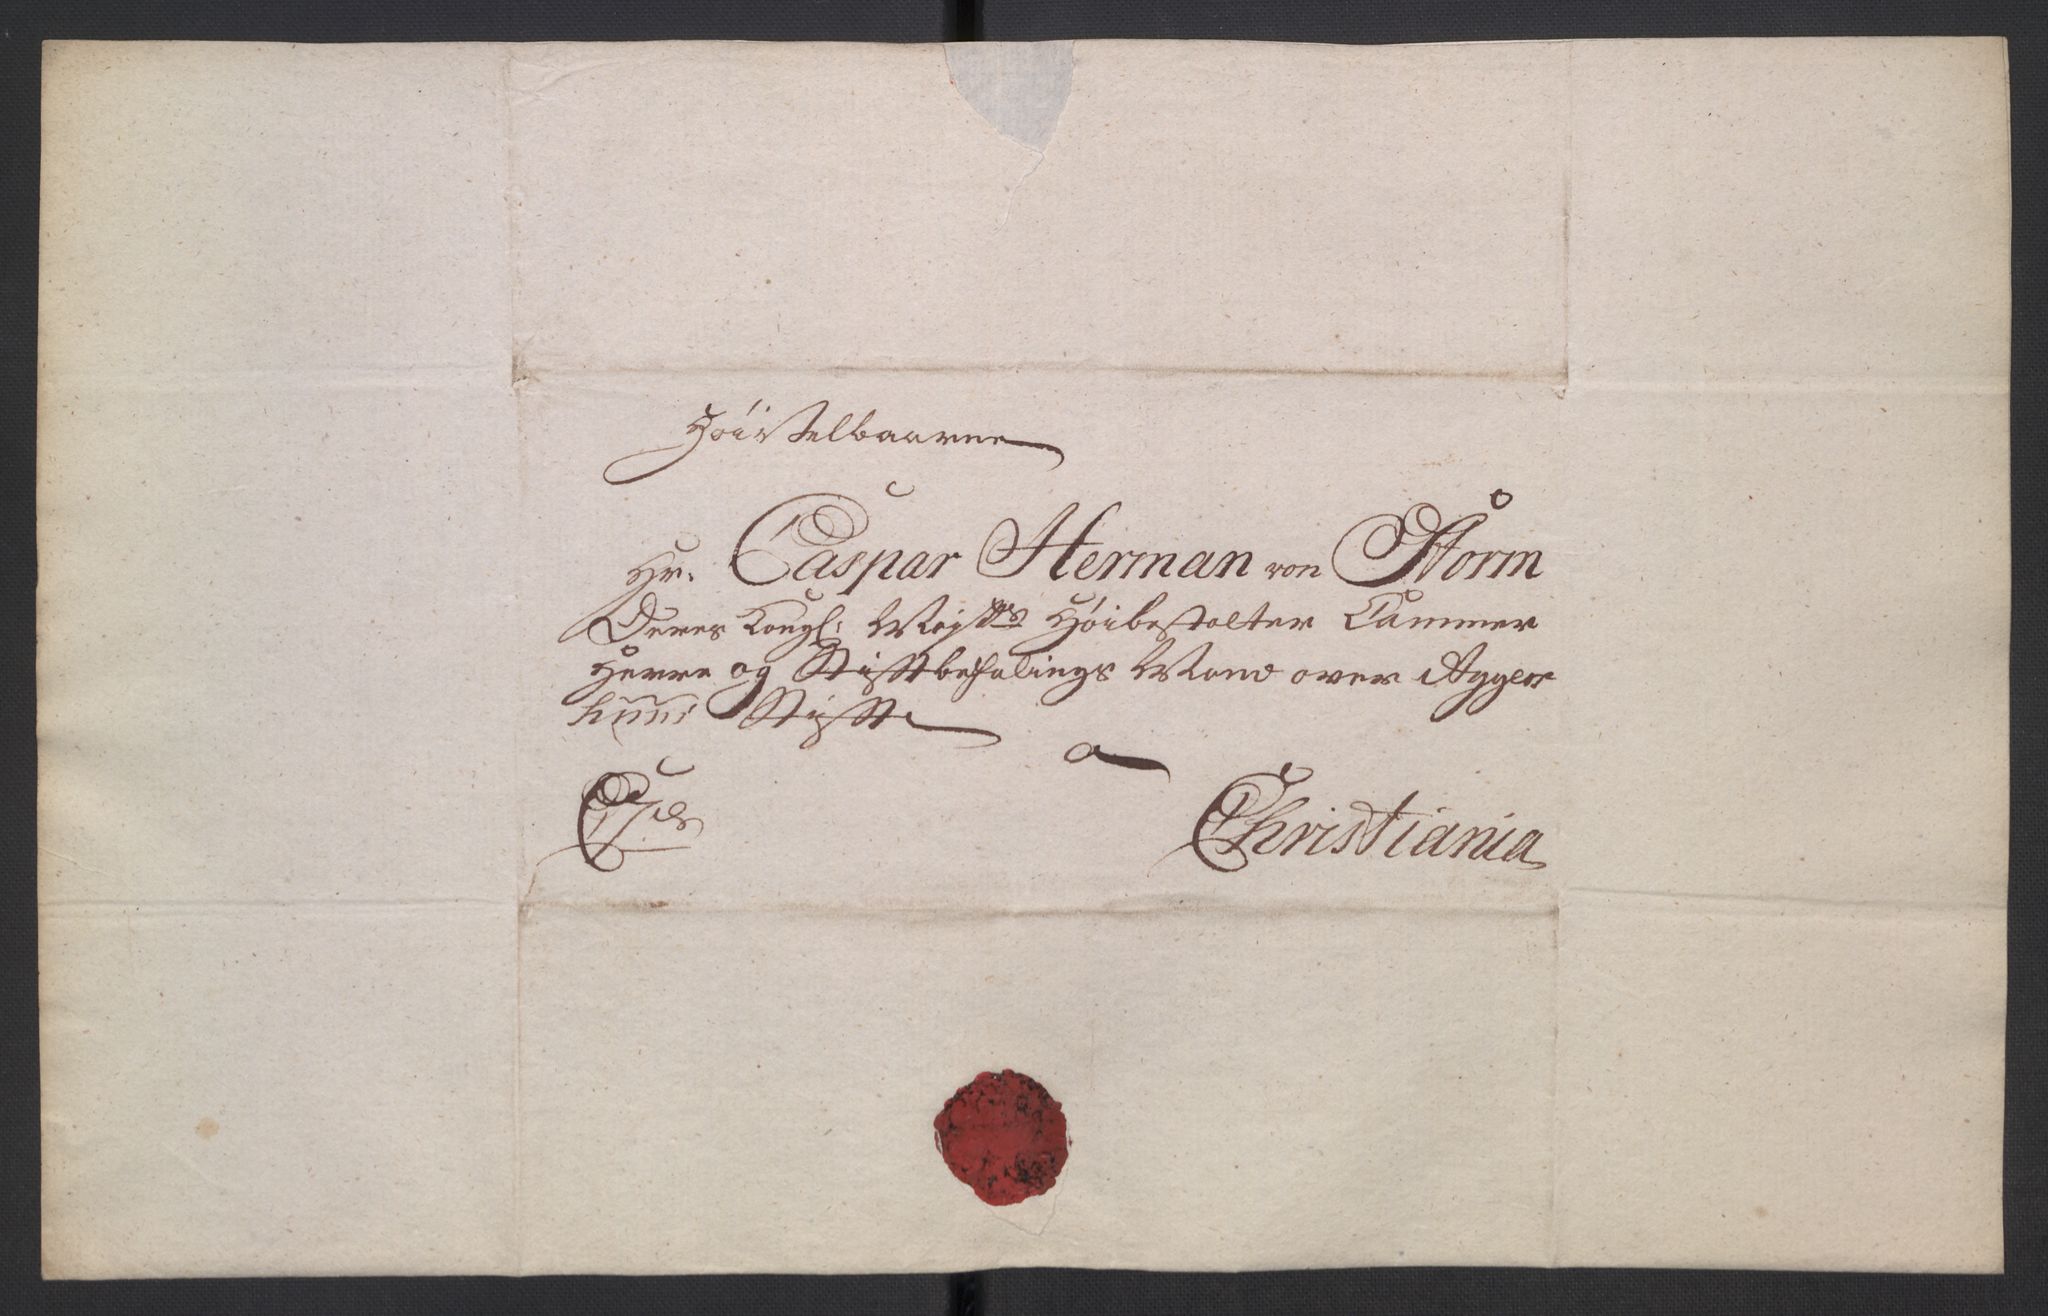 Høivelbaarne
Hr. Caspar Herman von Storm
Deres Kongl: Maysts Høibestalter Cammer
Herre og Stiftbefalings Mand over Agger
huus Stift
a
Christiania